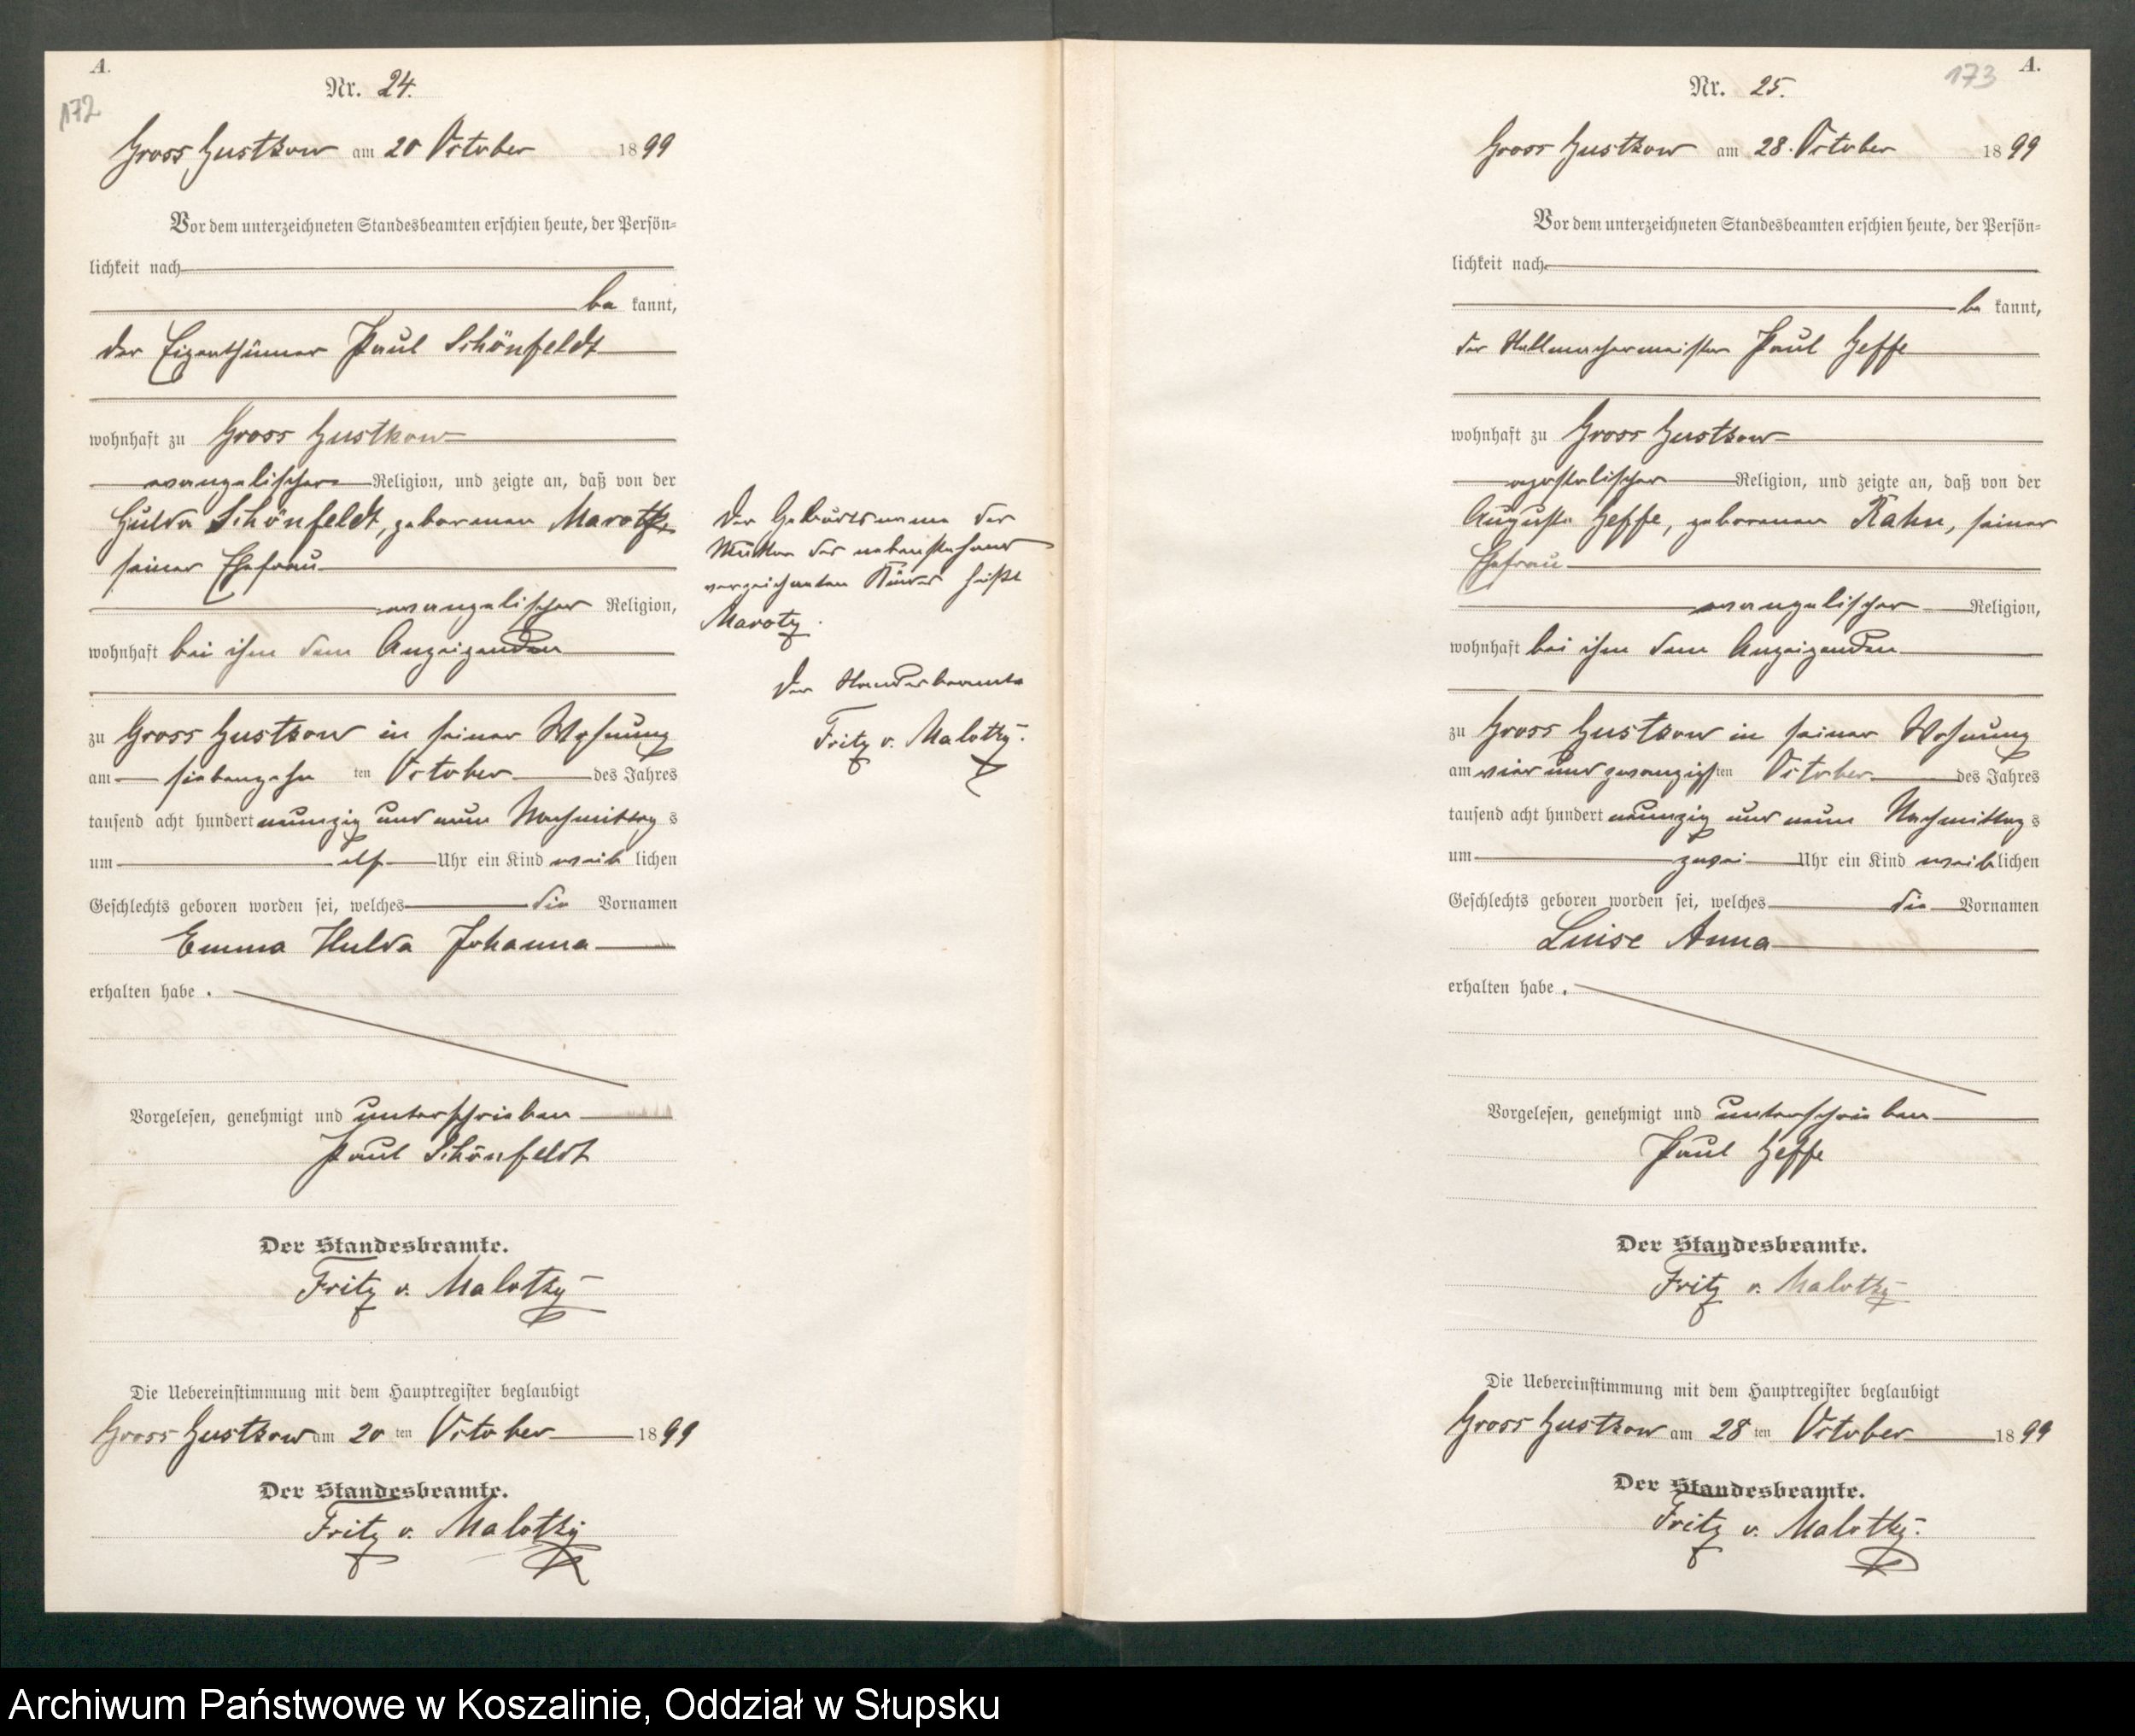 A.
172
Nr. 24.
Gross Gustkow am 20 October 1899
Vor dem unterzeichneten Standesbeamten erschien heute, der Persön-
lichkeit nach
be kannt,
der Eigenthümer Paul Schönfeldt
wohnhaft zu Gross Gustkow
evangelischer Religion, und zeigte an, daß von der
Hulda Schönfeldt, geborenen Marotzke
seiner Ehefrau
evangelischer Religion,
wohnhaft bei ihm dem Anzeigenden
zu Gross Gustkow in seiner Wohnung
am siebenzehn ten October des Jahres
tausend acht hundert neunzig und neun Nachmittag s
um elf Uhr ein Kind weib lichen
Geschlechts geboren worden sei, welches die Vornamen
Emma Hulda Johanna
erhalten habe.
Vorgelesen, genehmigt und unterschrieben
Paul Schönfeldt
Der Standesbeamte.
Fritz v. Malotky
Die Uebereinstimmung mit dem Hauptregister beglaubigt
Gross Gustkow am 20 ten October 1899
Der Standesbeamte.
Fritz v. Malotky
Der Geburtsname der
Mutter des nebenstehend
verzeichneten Kindes heißt
Marotz.
Der Standesbeamte
Fritz v. Malotky.
173
A.
Nr. 25.
Gross Gustkow am 28. October 1899
Vor dem unterzeichneten Standesbeamten erschien heute, der Persön-
lichkeit nach
be kannt,
der Stellmachermeister Paul Geffe
wohnhaft zu Gross Gustkow
apostolischer Religion, und zeigte an, daß von der
Auguste Geffe, geborenen Rahn, seiner
Ehefrau
evangelischer Religion,
wohnhaft bei ihm dem Anzeigenden
zu Gross Gustkow in seiner Wohnung
am vier und zwanzigsten October des Jahres
tausend acht hundert neunzig und neun Nachmittag s
um zwei Uhr ein Kind weiblichen
Geschlechts geboren worden sei, welches die Vornamen
Luise Anna
erhalten habe.
Vorgelesen, genehmigt und unterschrieben
Paul Geffe
Der Standesbeamte.
Fritz v. Malotky
Die Uebereinstimmung mit dem Hauptregister beglaubigt
Gross Gustkow am 28 ten October 1899
Der Standesbeamte.
Fritz v. Malotky.
Archiwum Państwowe w Koszalinie, Oddział w Słupsku